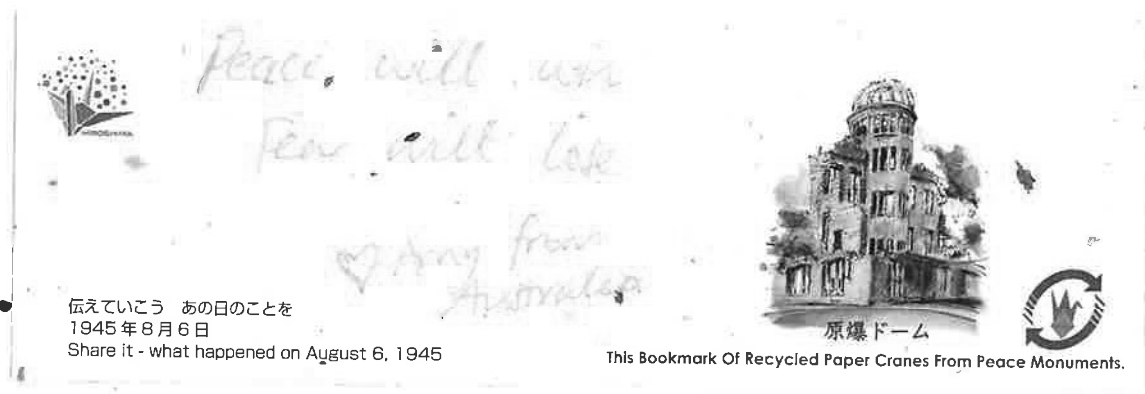 Peace will win
Fear will lose
♡ from
Australia
HIROSHIMA
伝えていこう あの日のことを
1945年8月6日
Share it - what happened on August 6, 1945
原爆ドーム
This Bookmark Of Recycled Paper Cranes From Peace Monuments.